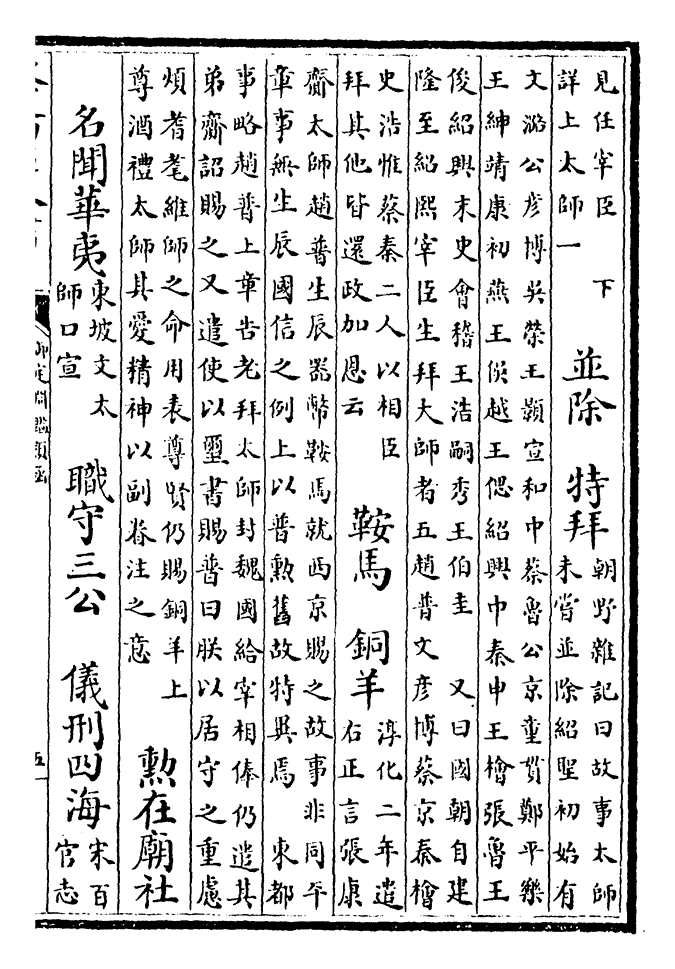 見任宰臣　下
詳上太師一
並除　特拜
朝野雜記曰故事太師
未嘗並除紹聖初始有
文潞公彥博吳榮王顥宣和中蔡魯公京童貫鄭平樂
王紳靖康初燕王俁越王偲紹興中秦申王檜張魯王
俊紹興末史會稽王浩嗣秀王伯圭　又曰國朝自建
隆至紹熙宰臣生拜大師者五趙普文彥博蔡京秦檜
史浩惟蔡秦二人以相臣
拜其他皆還政加恩云
鞍馬　銅羊
淳化二年遣
右正言張康
齋太師趙普生辰器幣鞍馬就西京賜之故事非同平
章事無生辰國信之例上以普勲舊故特異焉　東都
事略趙普上章告老拜太師封魏國給宰相俸仍遣其
弟齋詔賜之又遣使以璽書賜普曰朕以居守之重慮
煩耆耄維師之命用表尊賢仍賜銅羊上
尊酒禮太師其愛精神以副眷注之意
勲在廟社
名聞華夷
東坡文太
師口宣
職守三公　儀刑四海
宋百
官志
御定淵鑑類函
五